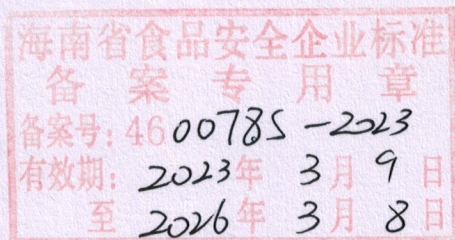 海南省食品安全企业标准
备案专用章
备案号：46 0078S-2023
有效期：2023年3月9日
至2026年3月8日